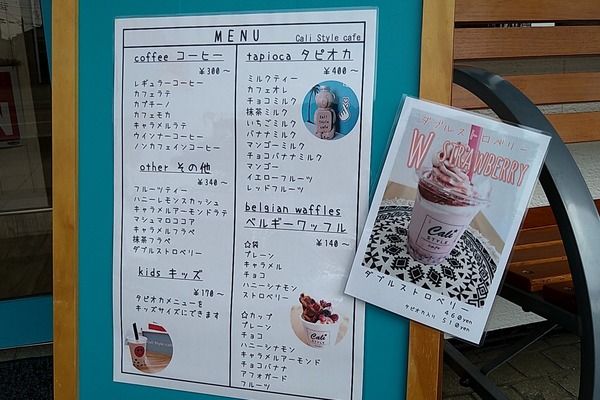 MENU
Cali Style cafe
coffee コーヒー
¥300～
レギュラーコーヒー
カフェラテ
カプチーノ
カフェモカ
キャラメルラテ
ウインナーコーヒー
ノンカフェインコーヒー
other その他
¥340～
フルーツティー
ハニーレモンスカッシュ
キャラメルアーモンドラテ
マシュマロココア
キャラメルフラペ
抹茶フラペ
ダブルストロベリー
kids キッズ
¥170～
タピオカメニューを
キッズサイズにできます
tapioca タピオカ
¥400～
ミルクティー
カフェオレ
チョコミルク
抹茶ミルク
いちごミルク
バナナミルク
マンゴーミルク
チョコバナナミルク
マンゴー
イエローフルーツ
レッドフルーツ
belgian waffles
ベルギーワッフル
¥140～
☆袋
プレーン
キャラメル
チョコ
ハニーシナモン
ストロベリー
☆カップ
プレーン
チョコ
ハニーシナモン
キャラメルアーモンド
チョコバナナ
アフォガード
フルーツ
ダブルストロベリー
W STRAWBERRY
Cali
STYLE
ダブルストロベリー
460yen
タピオカ入り 510yen